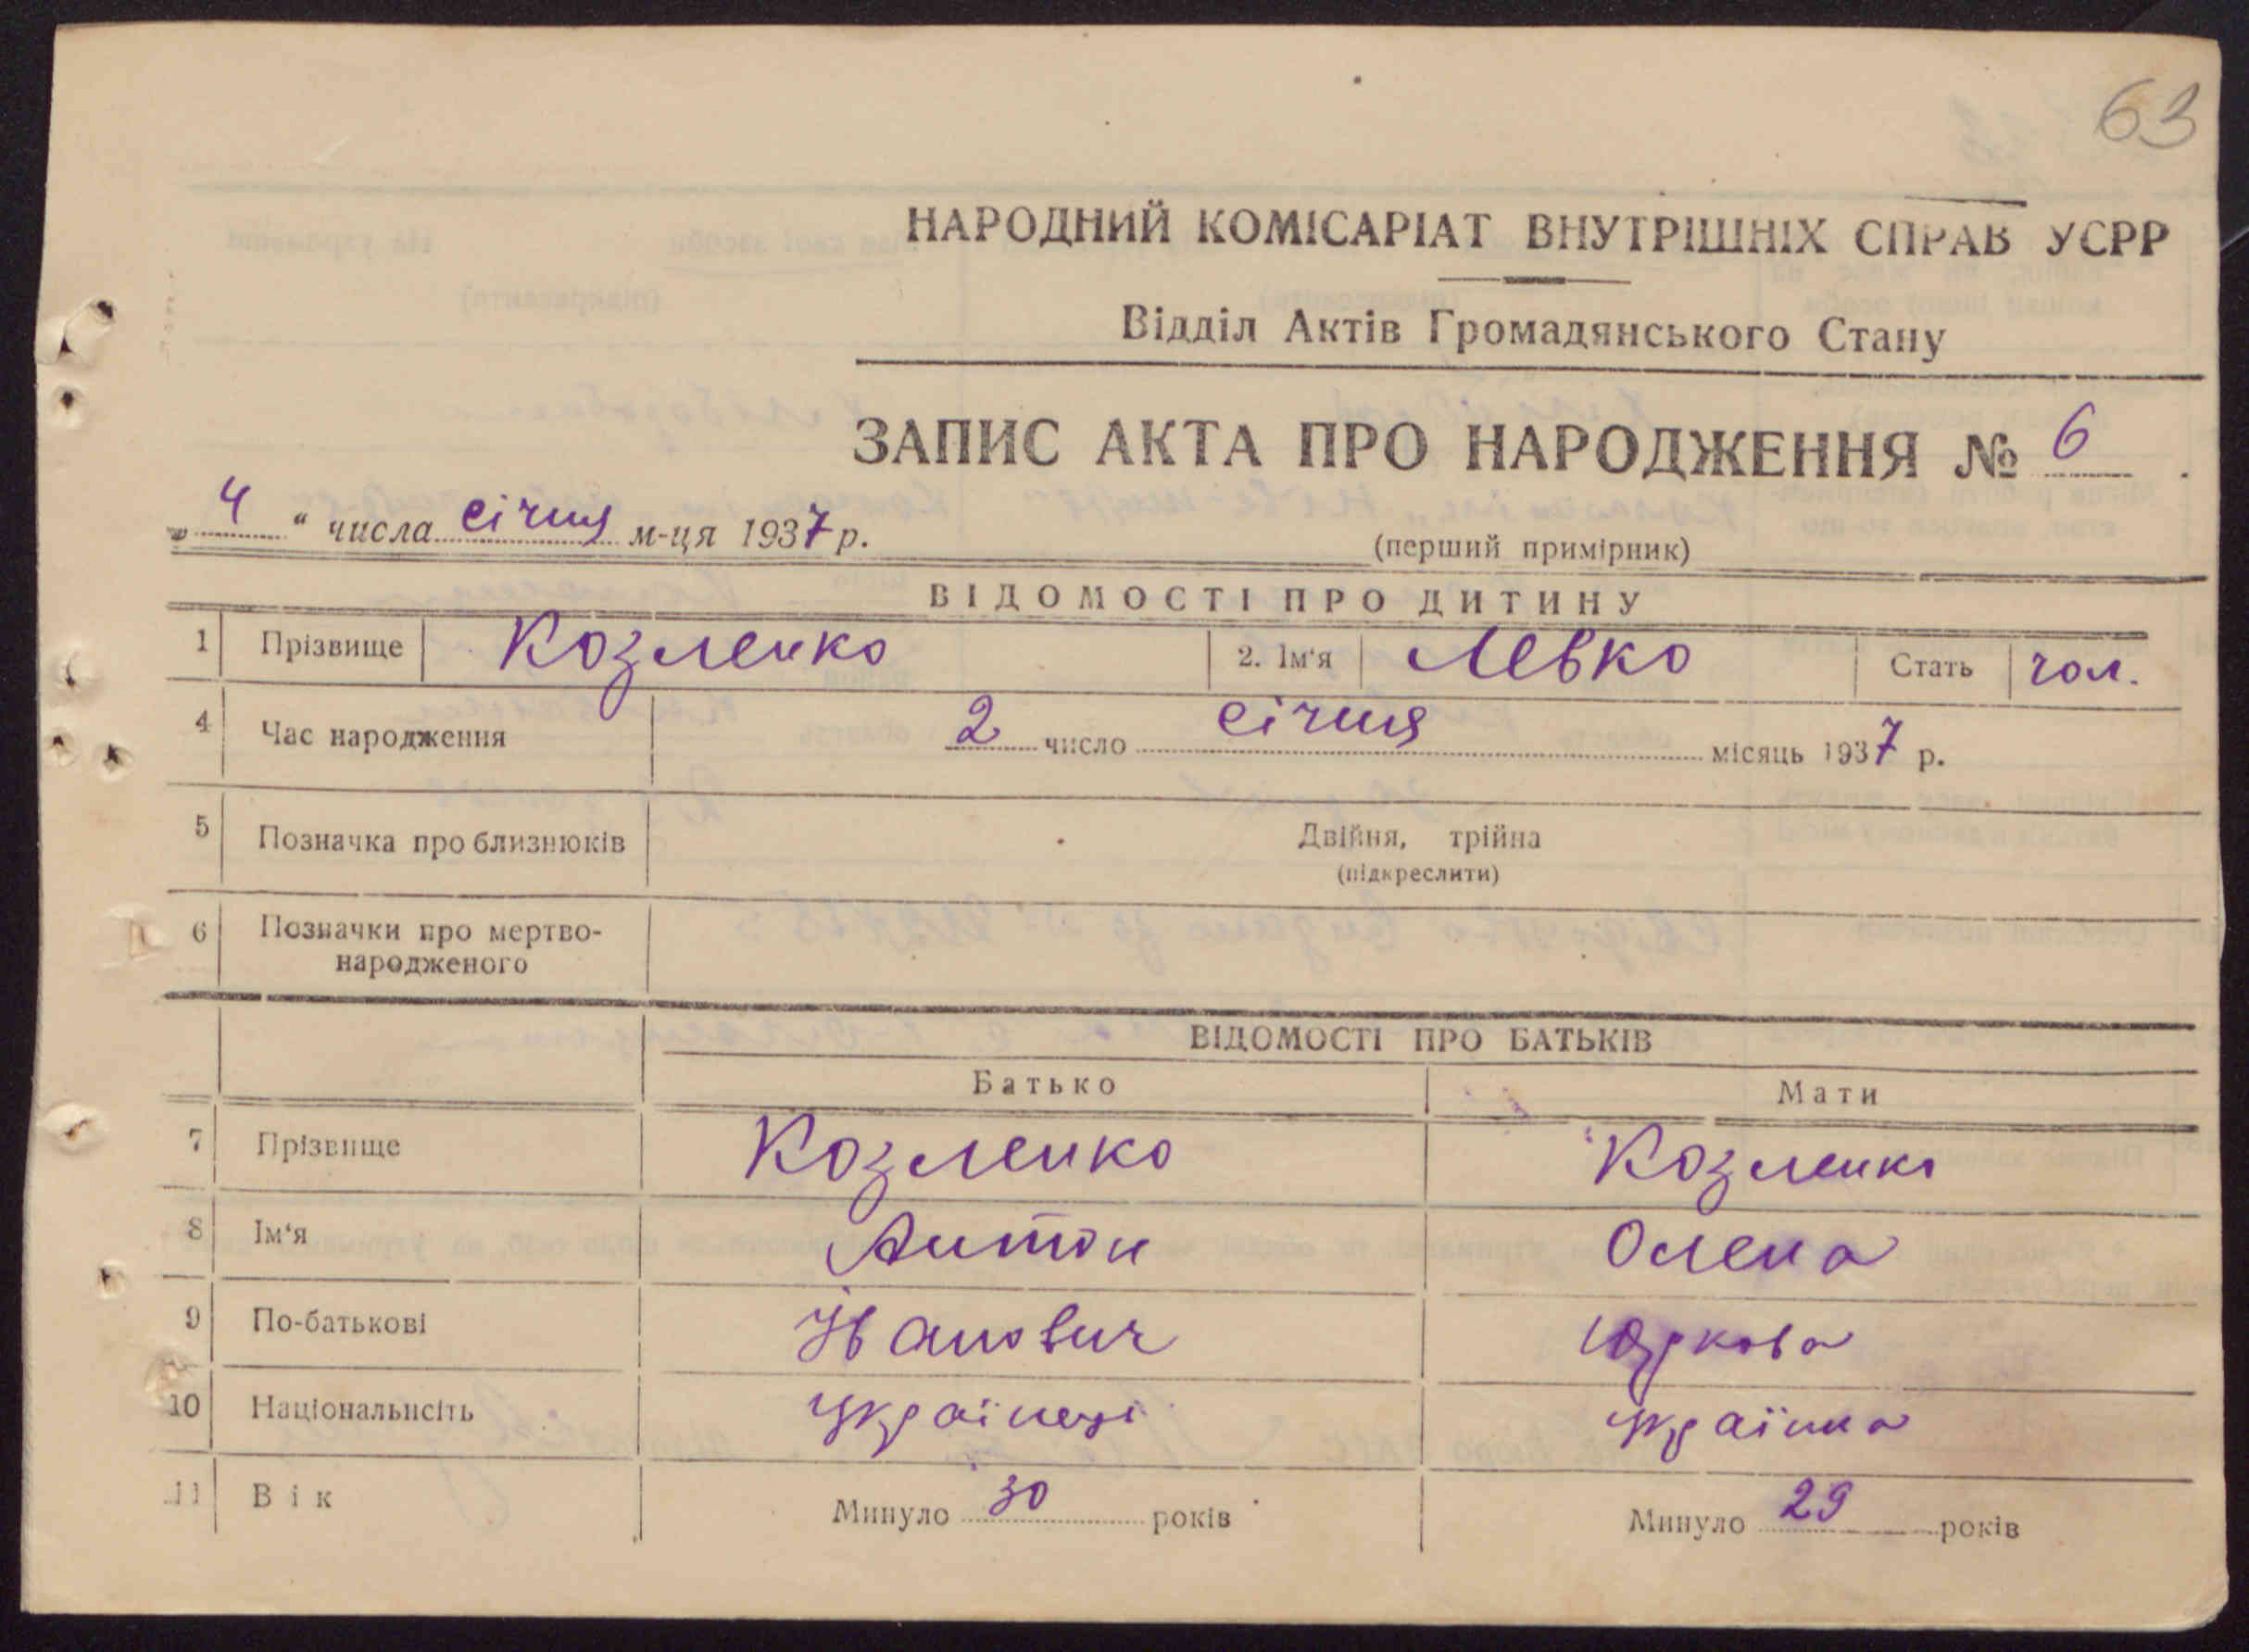 63
НАРОДНИЙ КОМІСАРІАТ ВНУТРІШНІХ СПРАВ УСРР
Відділ Актів Громадянського Стану
ЗАПИС АКТА ПРО НАРОДЖЕННЯ № 6
„ 4 “ числа січня м-ця 1937 р.
(перший примірник)
ВІДОМОСТІ ПРО ДИТИНУ
1 Прізвище Козленко 2. Ім‘я Левко Стать чол.
4 Час народження 2 число січня місяць 1937 р.
5 Позначка про близнюків Двійня, трійна
(підкреслити)
6 Позначки про мертво-
народженого
ВІДОМОСТІ ПРО БАТЬКІВ
Батько Мати
7 Прізвище Козленко Козленко
8 Ім‘я Антон Олена
9 По-батькові Іванович Юркова
10 Національнсіть українець українка
11 Вік Минуло 30 років Минуло 29 років